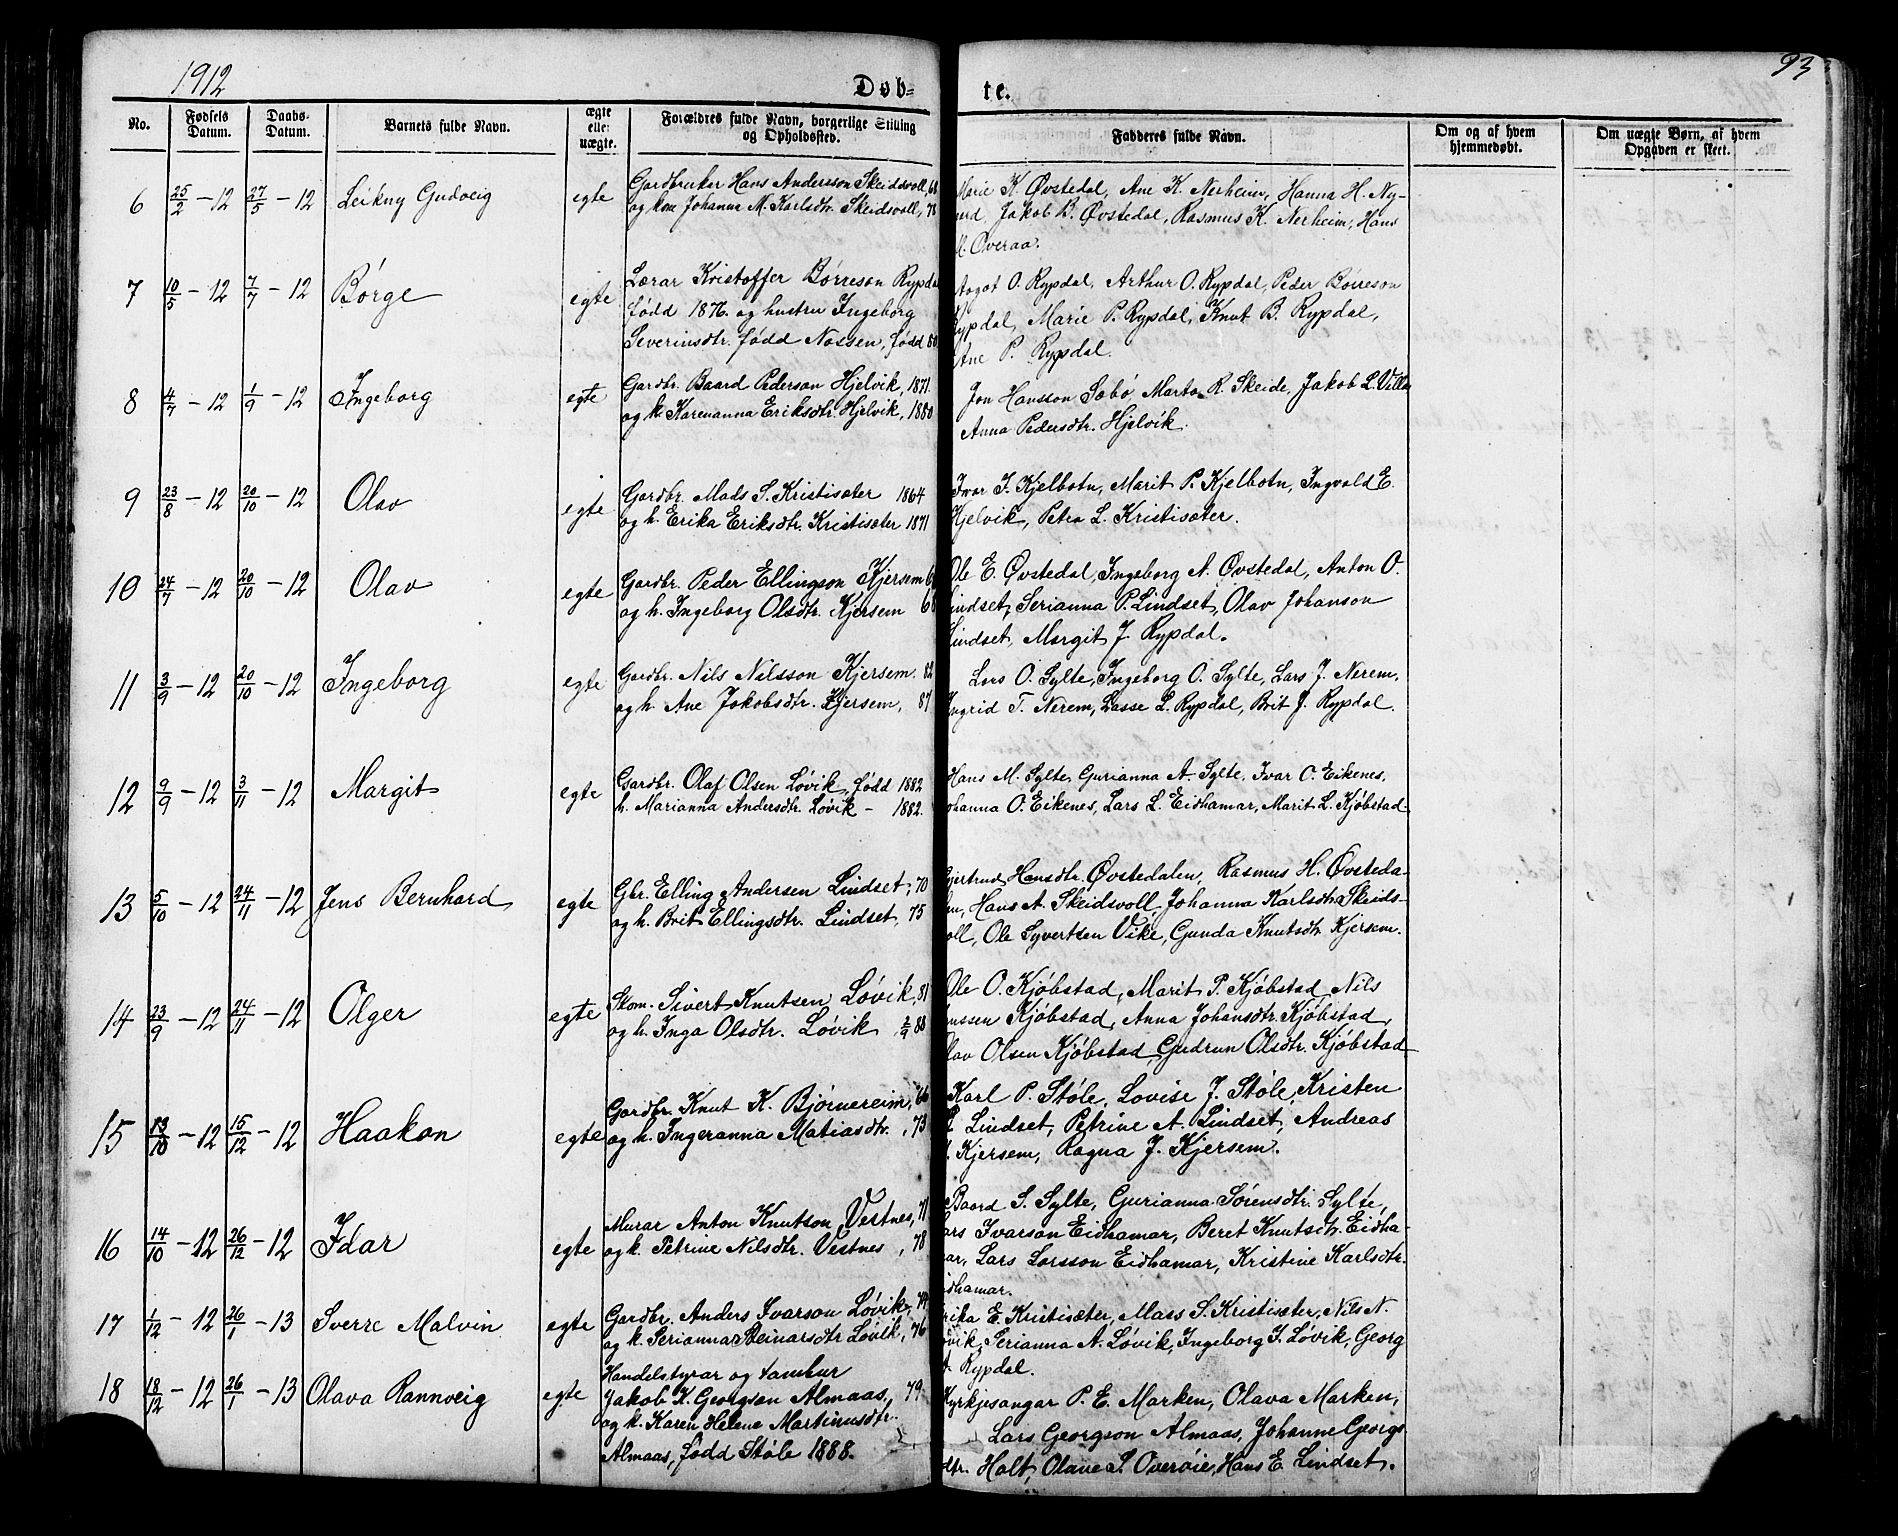 1912
93
Døb-
te.
No.
Fødsels Datum.
Daabs-Datum.
Barnets fulde Navn.
ægte eller uægte.
Forældres fulde Navn, borgerlige Stilling og Opholdssted.
Fadderes fulde Navn.
Om og af hvem hjemmedøbt.
Om uægte Børn, af hvem Opgaven er skeet.
6 25/2 - 12 27/5 - 12 Leikny Gudveig egte
Gardbruker Hans Andersson Skeidsvoll, 68
og kone Johanna M. Karlsdtr. Skeidsvoll, 78
Marie K. Øvstedal, Ane K. Nerheim, Hanna H. Ny-
Jakob B. Øvstedal, Rasmus K. Nerheim, Hans
Overaa.
7 10/5 - 12 7/7 - 12 Børge egte
Lærar Kristoffer Børreson Rypdal
född 1876. og hustru Ingeborg
Severinsdtr. född Nossen, född 80
Aagot O. Rypdal, Arthur O. Rypdal, Peder Børreson
Rypdal, Marie P. Rypdal, Knut B. Rypdal,
Ane P. Rypdal.
8 4/7 - 12 1/9 - 12 Ingeborg egte
Gardbr. Baard Pederson Hjelvik, 1871.
og k. Karenanna Eriksdtr. Hjelvik, 1880
Jon Hansson Søbø, Marta R. Skeide, Jakob L. Villa
Anna Pedersdtr. Hjelvik.
9 23/8 - 12 20/10 - 12 Olav egte
Gardbr. Mads S. Kristisæter 1864
og h. Erika Eriksdtr. Kristisæter 1871
Ivar I. Kjelbotn, Marit P. Kjelbotn, Ingvald E.
Hjelvik, Petra L. Kristisæter.
10 24/7 - 12 20/10 - 12 Olav egte
Gardbr. Peder Ellingson Kjersem 6
og h. Ingeborg Olsdtr. Kjersem 68
Ole E. Øvstedal, Ingeborg A. Øvstedal, Anton O.
Lindset, Serianna P. Lindset, Olav Johanson
Lindset, Margit J. Rypdal.
11 3/9 - 12 20/10 - 12 Ingeborg egte
Gardbr. Nils Nilsson Kjersem. 82
og h. Ane Jakobsdtr. Kjersem, 87
Lars O. Sylte, Ingeborg O. Sylte, Lars J. Nerem,
Ingrid T. Nerem, Lasse L. Rypdal, Brit J. Rypdal.
12 9/9 - 12 3/11 - 12 Margit egte
Gardbr. Olaf Olsen Løvik, född 1882
h. Marianna Andersdtr. Løvik - 1882.
Hans M. Sylte, Gurianna A. Sylte, Ivar O. Eikenes,
Johanna O. Eikenes, Lars L. Eidhamar, Marit L. Kjøbstad
13 5/10 - 12 24/11 - 12 Jens Bernhard egte
Gbr. Elling Andersen Lindset, 70
og h. Brit Ellingsdtr. Lindset, 75
Gjertrud Hansdtr. Øvstedalen, Rasmus H. Øvsteda-
Hans A. Skeidsvoll, Johanna Karlsdtr. Skeids-
voll, Ole Syvertsen Vike, Gunda Knutsdtr. Kjersem.
14 23/9 - 12 24/11 - 12 Olger egte
Skom. Sivert Knutsen Løvik, 81
og h. Inga Olsdtr. Løvik, 2/9 88
Ole O. Kjøbstad, Marit P. Kjøbstad, Nils
Kjøbstad, Anna Johansdtr. Kjøbstad,
Olav Olsen Kjøbstad, Gudrun Olsdtr. Kjøbstad
15 13/10 - 12 15/12 - 12 Haakon egte
Gardbr. Knut K. Bjørnereim, 66
og h. Ingeranna Matiasdtr. , 73
Karl P. Støle, Lovise J. Støle, Kristen
Lindset, Petrine A. Lindset, Andreas
Kjersem, Ragna J. Kjersem.
16 14/10 - 12 26/12 - 12 Idar egte
Murar Anton Knutson Vestnes, 71
og k. Petrine Nilsdtr. Vestnes, 78
Baard S. Sylte, Gurianna Sørensdtr. Sylte,
Lars Ivarson Eidhamar, Beret Knutsdtr. Eidha-
mar, Lars Larsson Eidhamar, Kristine Karlsdtr.
Eidhamar.
17 1/12 - 12 26/1 - 13 Sverre Malvin egte
Gardbr. Anders Ivarson Løvik, 74
og k. Serianna Steinarsdtr Løvik, 76
Erika E. Kristisæter, Mass S. Kristisæter, Nils N.
Løvik, Serianna A. Løvik, Ingeborg I. Løvik, Georg
Rypdal.
18 18/12 - 12 26/1 - 13 Olava Rannveig egte
Handelstyrar og tambur
Jakob K. Georgson Almaas, 79
og k. Karen Helene Martinusdtr.
Almaas, född Støle 1888.
Kyrkjesangar P. E. Marken, Olava Marken,
Lars Georgson Almaas, Johanne Georgs
dtr. Holt, Olave S. Overøie, Hans E. Lindset.